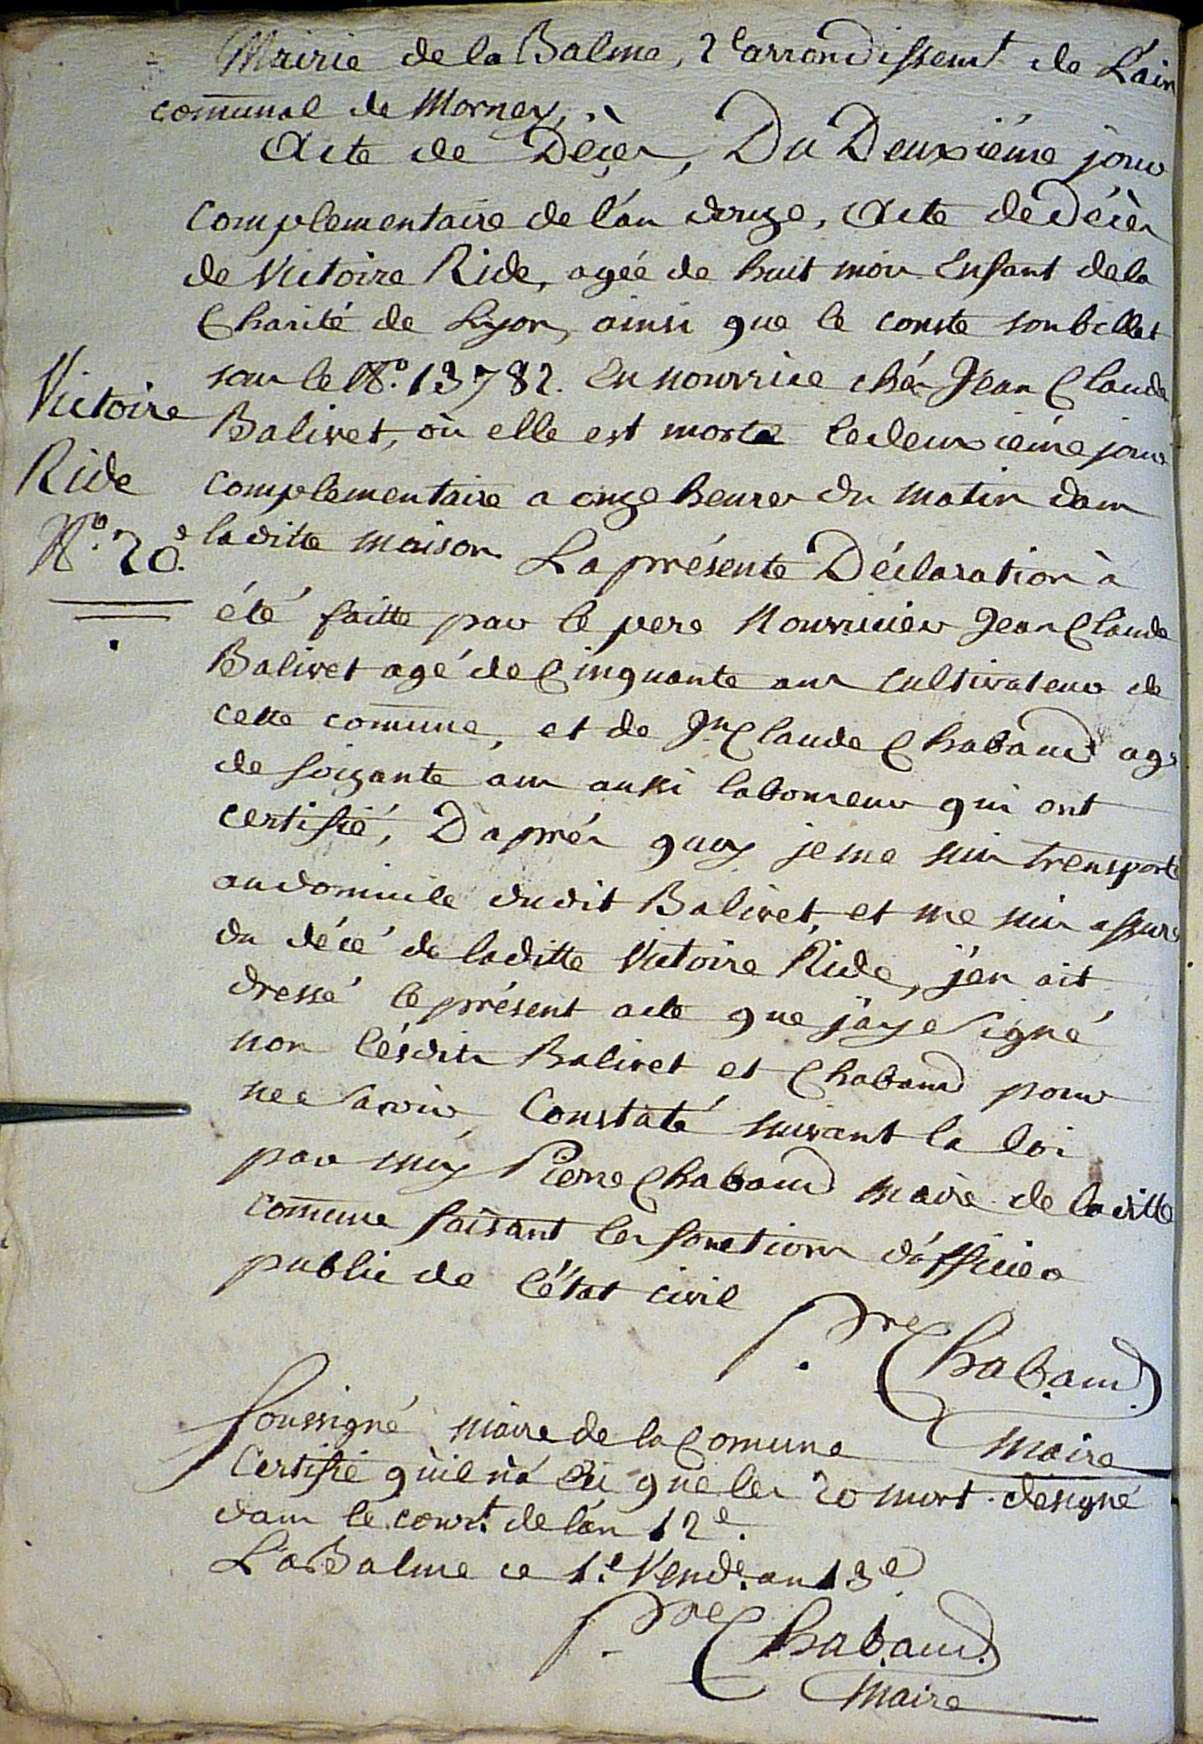 Mairie de la Balme, 2e arrondissemt de L'ain
communal de Mornay,
Acte de Décès, Du Deuxiéme jour
complementaire de l'an douze, Acte de Décès
de Victoire Ride, agée de huit mois Enfant de la
Charité de Lyon, ainsi que le conste son billet
sous le No. 13782. En nourrice chés Jean Claude
Balivet, où elle est morte le deuxiéme jour
complementaire a onze heures du matin dans
la ditte maison La présente Déclaration à
été faitte par le pere Nourricier Jean Claude
Balivet agé de Cinquante ans cultivateur de
cette commune, et de Jn Claude Chabaud agé
de soizante ans aussi laboureur qui ont
certifié, D'aprés quoy je me suis transporté
au domicile dudit Balivet, et me suis assuré
du décé de laditte Victoire Ride, j'en ait
dressé le présent acte que j'aye signé
non lésdits Balivet et Chabaud pour
ne savoir, Constaté suivant la loi
par moy Pierre Chabaud maire de laditte
commune faisant les fonctions d'officier
public de l'état civil
Victoire
Ride
No. 20e.
Pre Chabaud
Maire
Soussigné maire de la Comune
Certifie qu'il n'a éu que les 20 mort désigné
dans le cour.t de l'án 12e.
La Balme ce 1.e Vend.e an 13e
Pre Chabaud
Maire